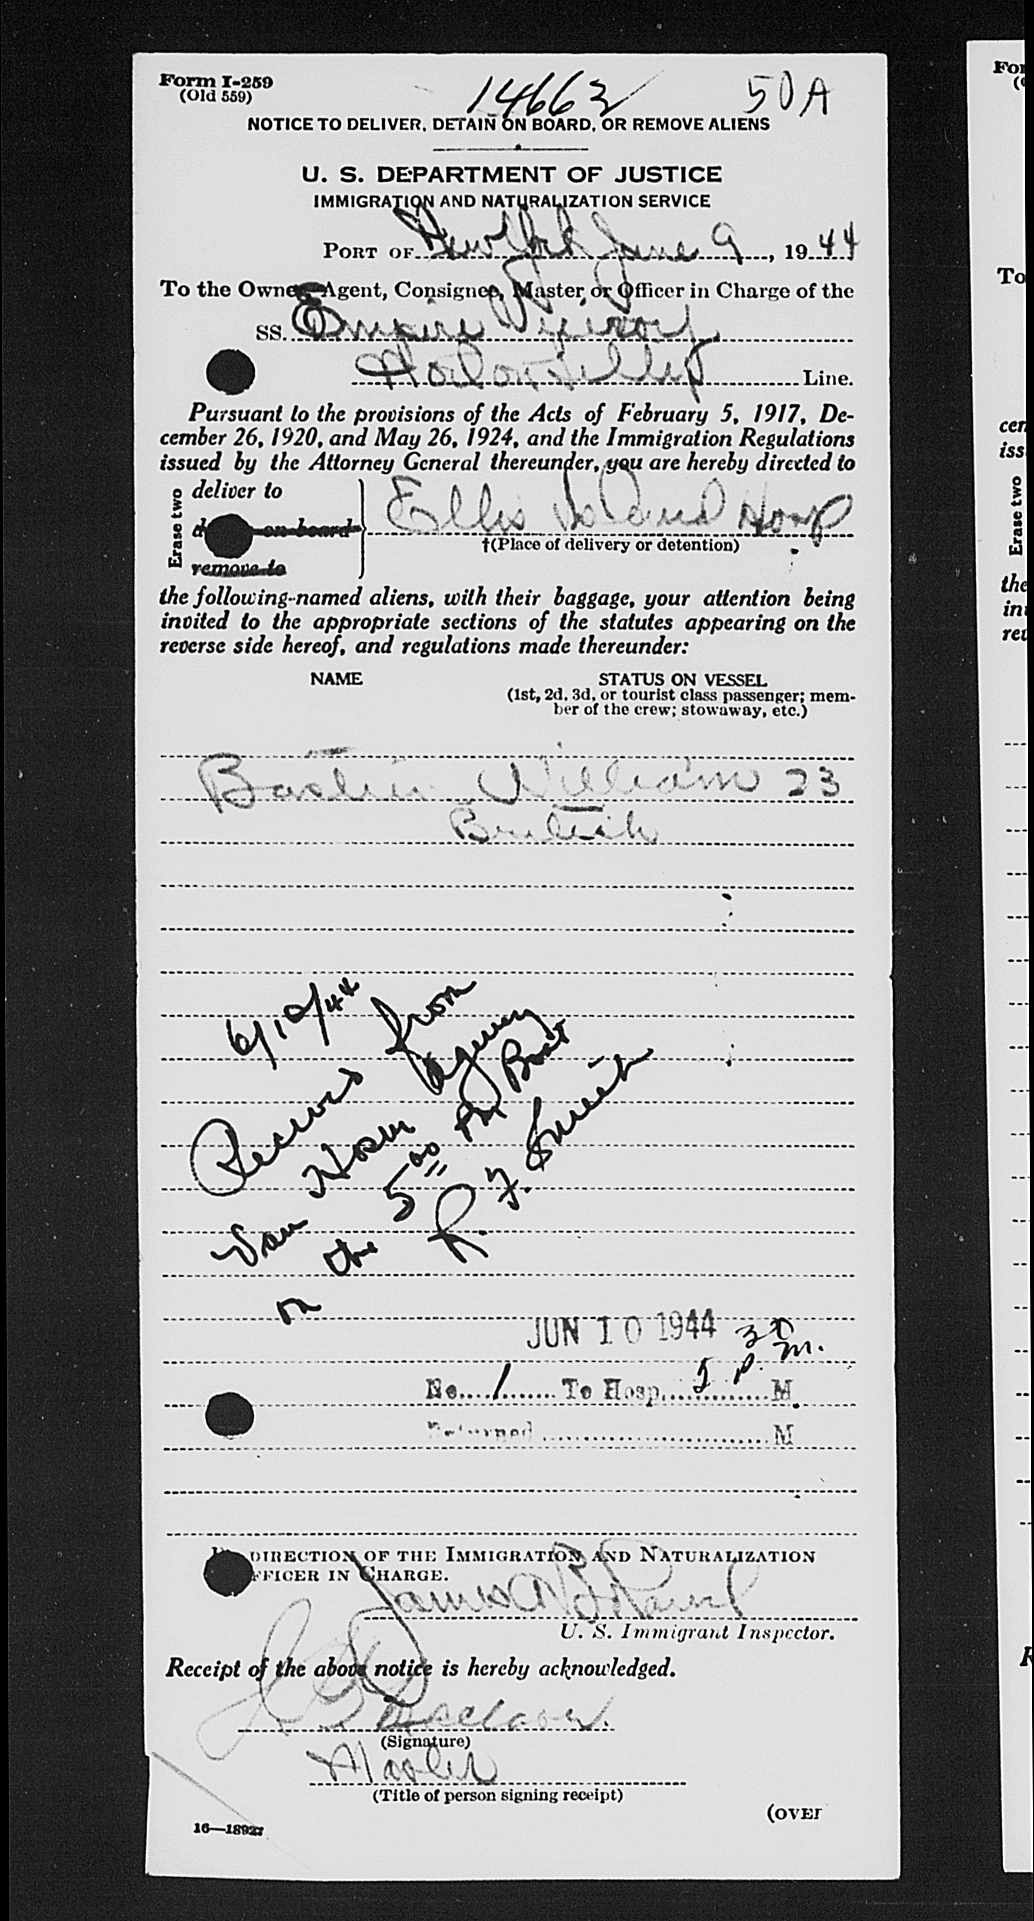 Form I-259
(Old 559)
14662 50A
NOTICE TO DELIVER, DETAIN ON BOARD, OR REMOVE ALIENS
U. S. DEPARTMENT OF JUSTICE
IMMIGRATION AND NATURALIZATION SERVICE
PORT OF New York June 9, 1944
To the Owner, Agent, Consignee, Master, or Officer in Charge of the
SS. Empire
Line.
Pursuant to the provisions of the Acts of February 5, 1917, De-
cember 26, 1920, and May 26, 1924, and the Immigration Regulations
issued by the Attorney General thereunder, you are hereby directed to
Erase two
deliver to
on board
remove to
Ellis Island Hosp
†(Place of delivery or detention)
the following-named aliens, with their baggage, your attention being
invited to the appropriate sections of the statutes appearing on the
reverse side hereof, and regulations made thereunder:
NAME STATUS ON VESSEL
(1st, 2d, 3d, or tourist class passenger; mem-
ber of the crew; stowaway, etc.)
Bastin William 23
British
6/10/44
Received from
Van Agency
on the 5 00 PM Boat
R. F. Smith
JUN 10 1944
No. 1 To Hosp. 5 30 P. M.
Returned M
DIRECTION OF THE IMMIGRATION AND NATURALIZATION
OFFICER IN CHARGE.
James
U. S. Immigrant Inspector.
Receipt of the above notice is hereby acknowledged.
(Signature)
Master
(Title of person signing receipt)
(OVER
16—18927